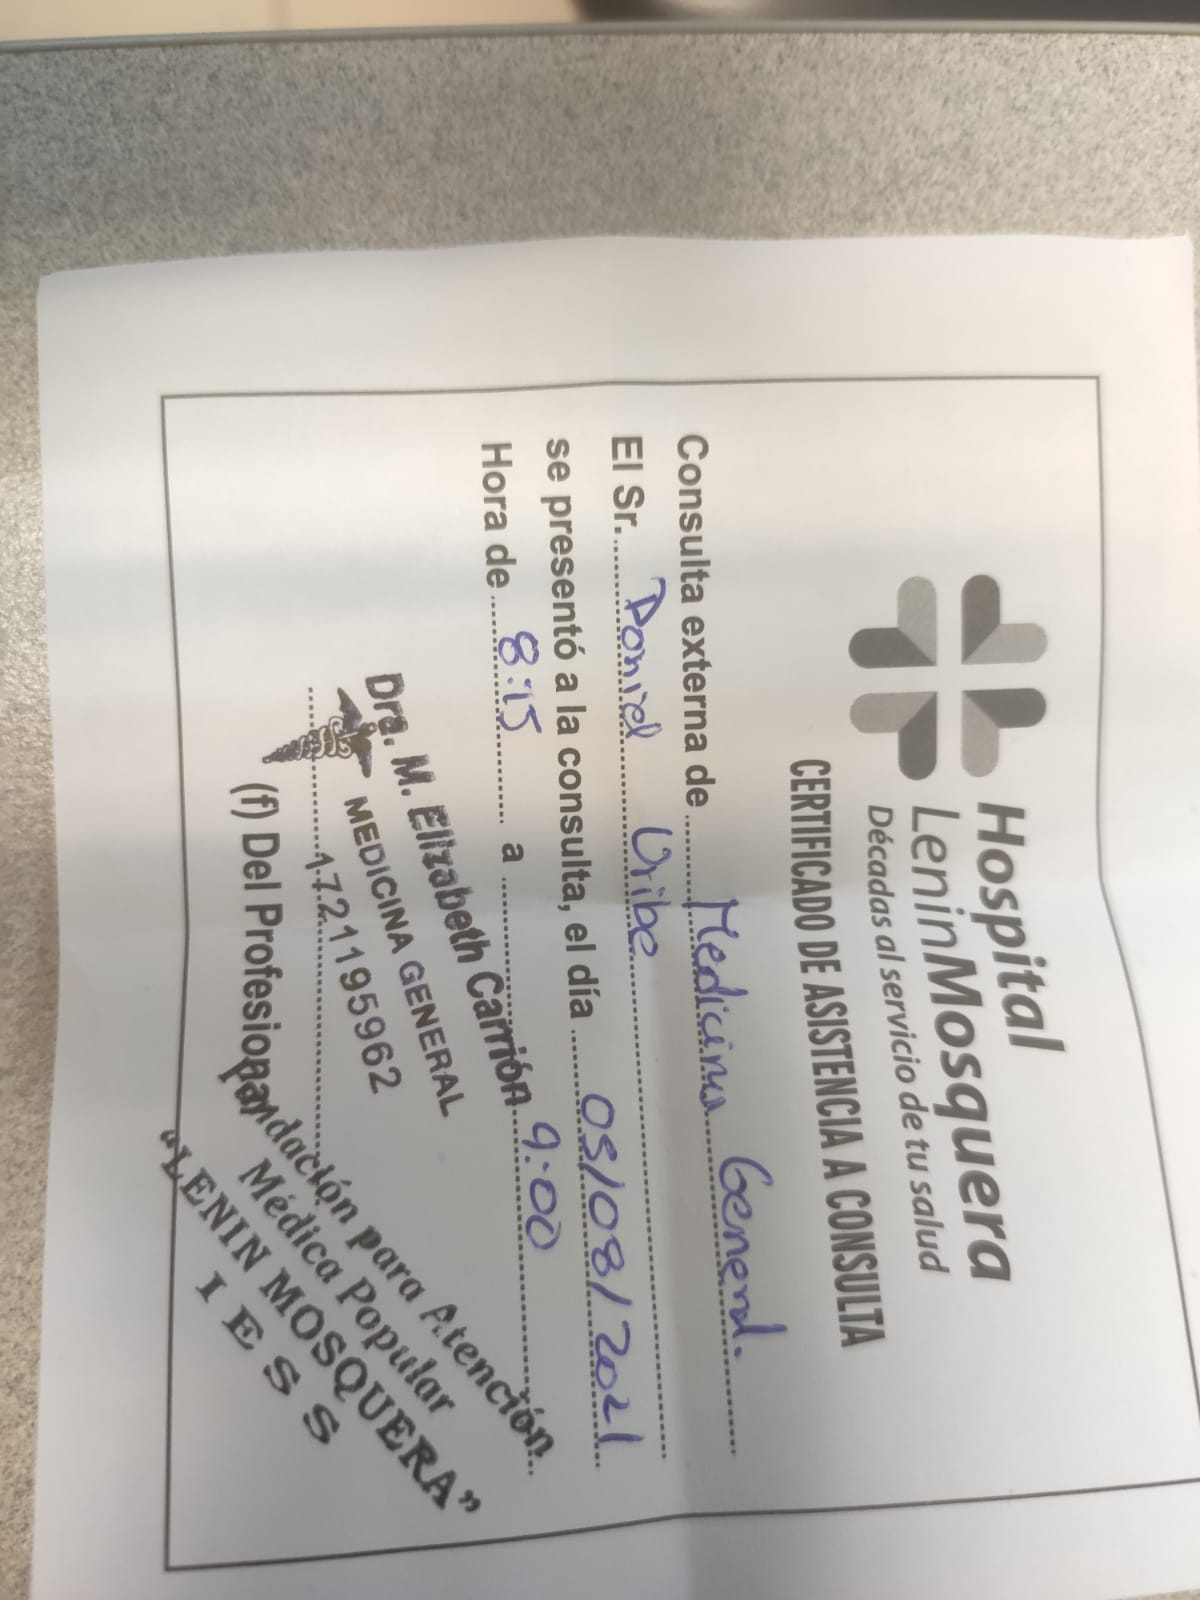 Hospital
LeninMosquera
Décadas al servicio de tu salud
CERTIFICADO DE ASISTENCIA A CONSULTA
Consulta externa de Medicina General.
El Sr. Daniel Uribe
se presentó a la consulta, el día 03/08/2021
Hora de 8:15 a 9:00
Dra. M. Elizabeth Carrión
MEDICINA GENERAL
1721195962
(f) Del Profesional
Fundación para Atención
Médica Popular
“LENIN MOSQUERA”
I E S S